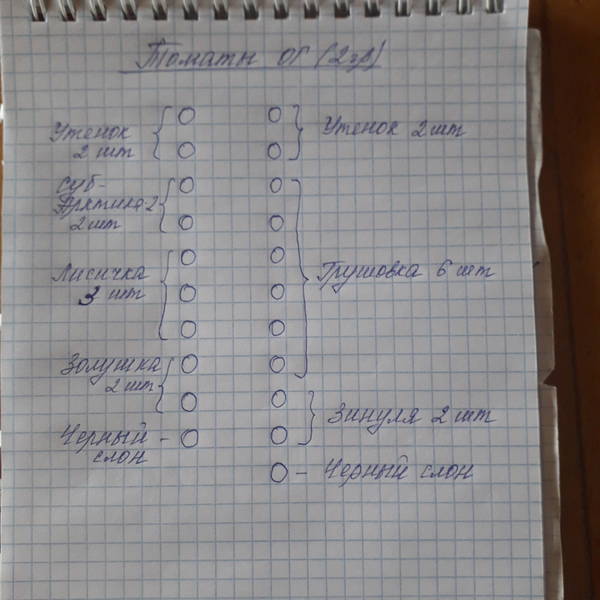 Томаты ОГ (2гр)
Утенок
2 шт
Утенок 2 шт
Суб-
Арктика-2
2 шт
Лисичка
3 шт
Грушовка 6 шт
Золушка
2 шт
Зинуля 2 шт
Черный -
слон
- Черный слон